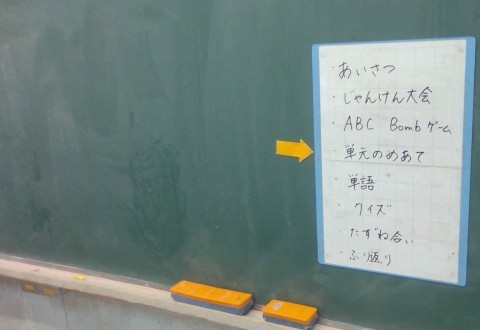 ・あいさつ
・じゃんけん大会
・ABC Bombゲーム
・単元のめあて
・単語
・クイズ
・たずね合い
・ふり返り